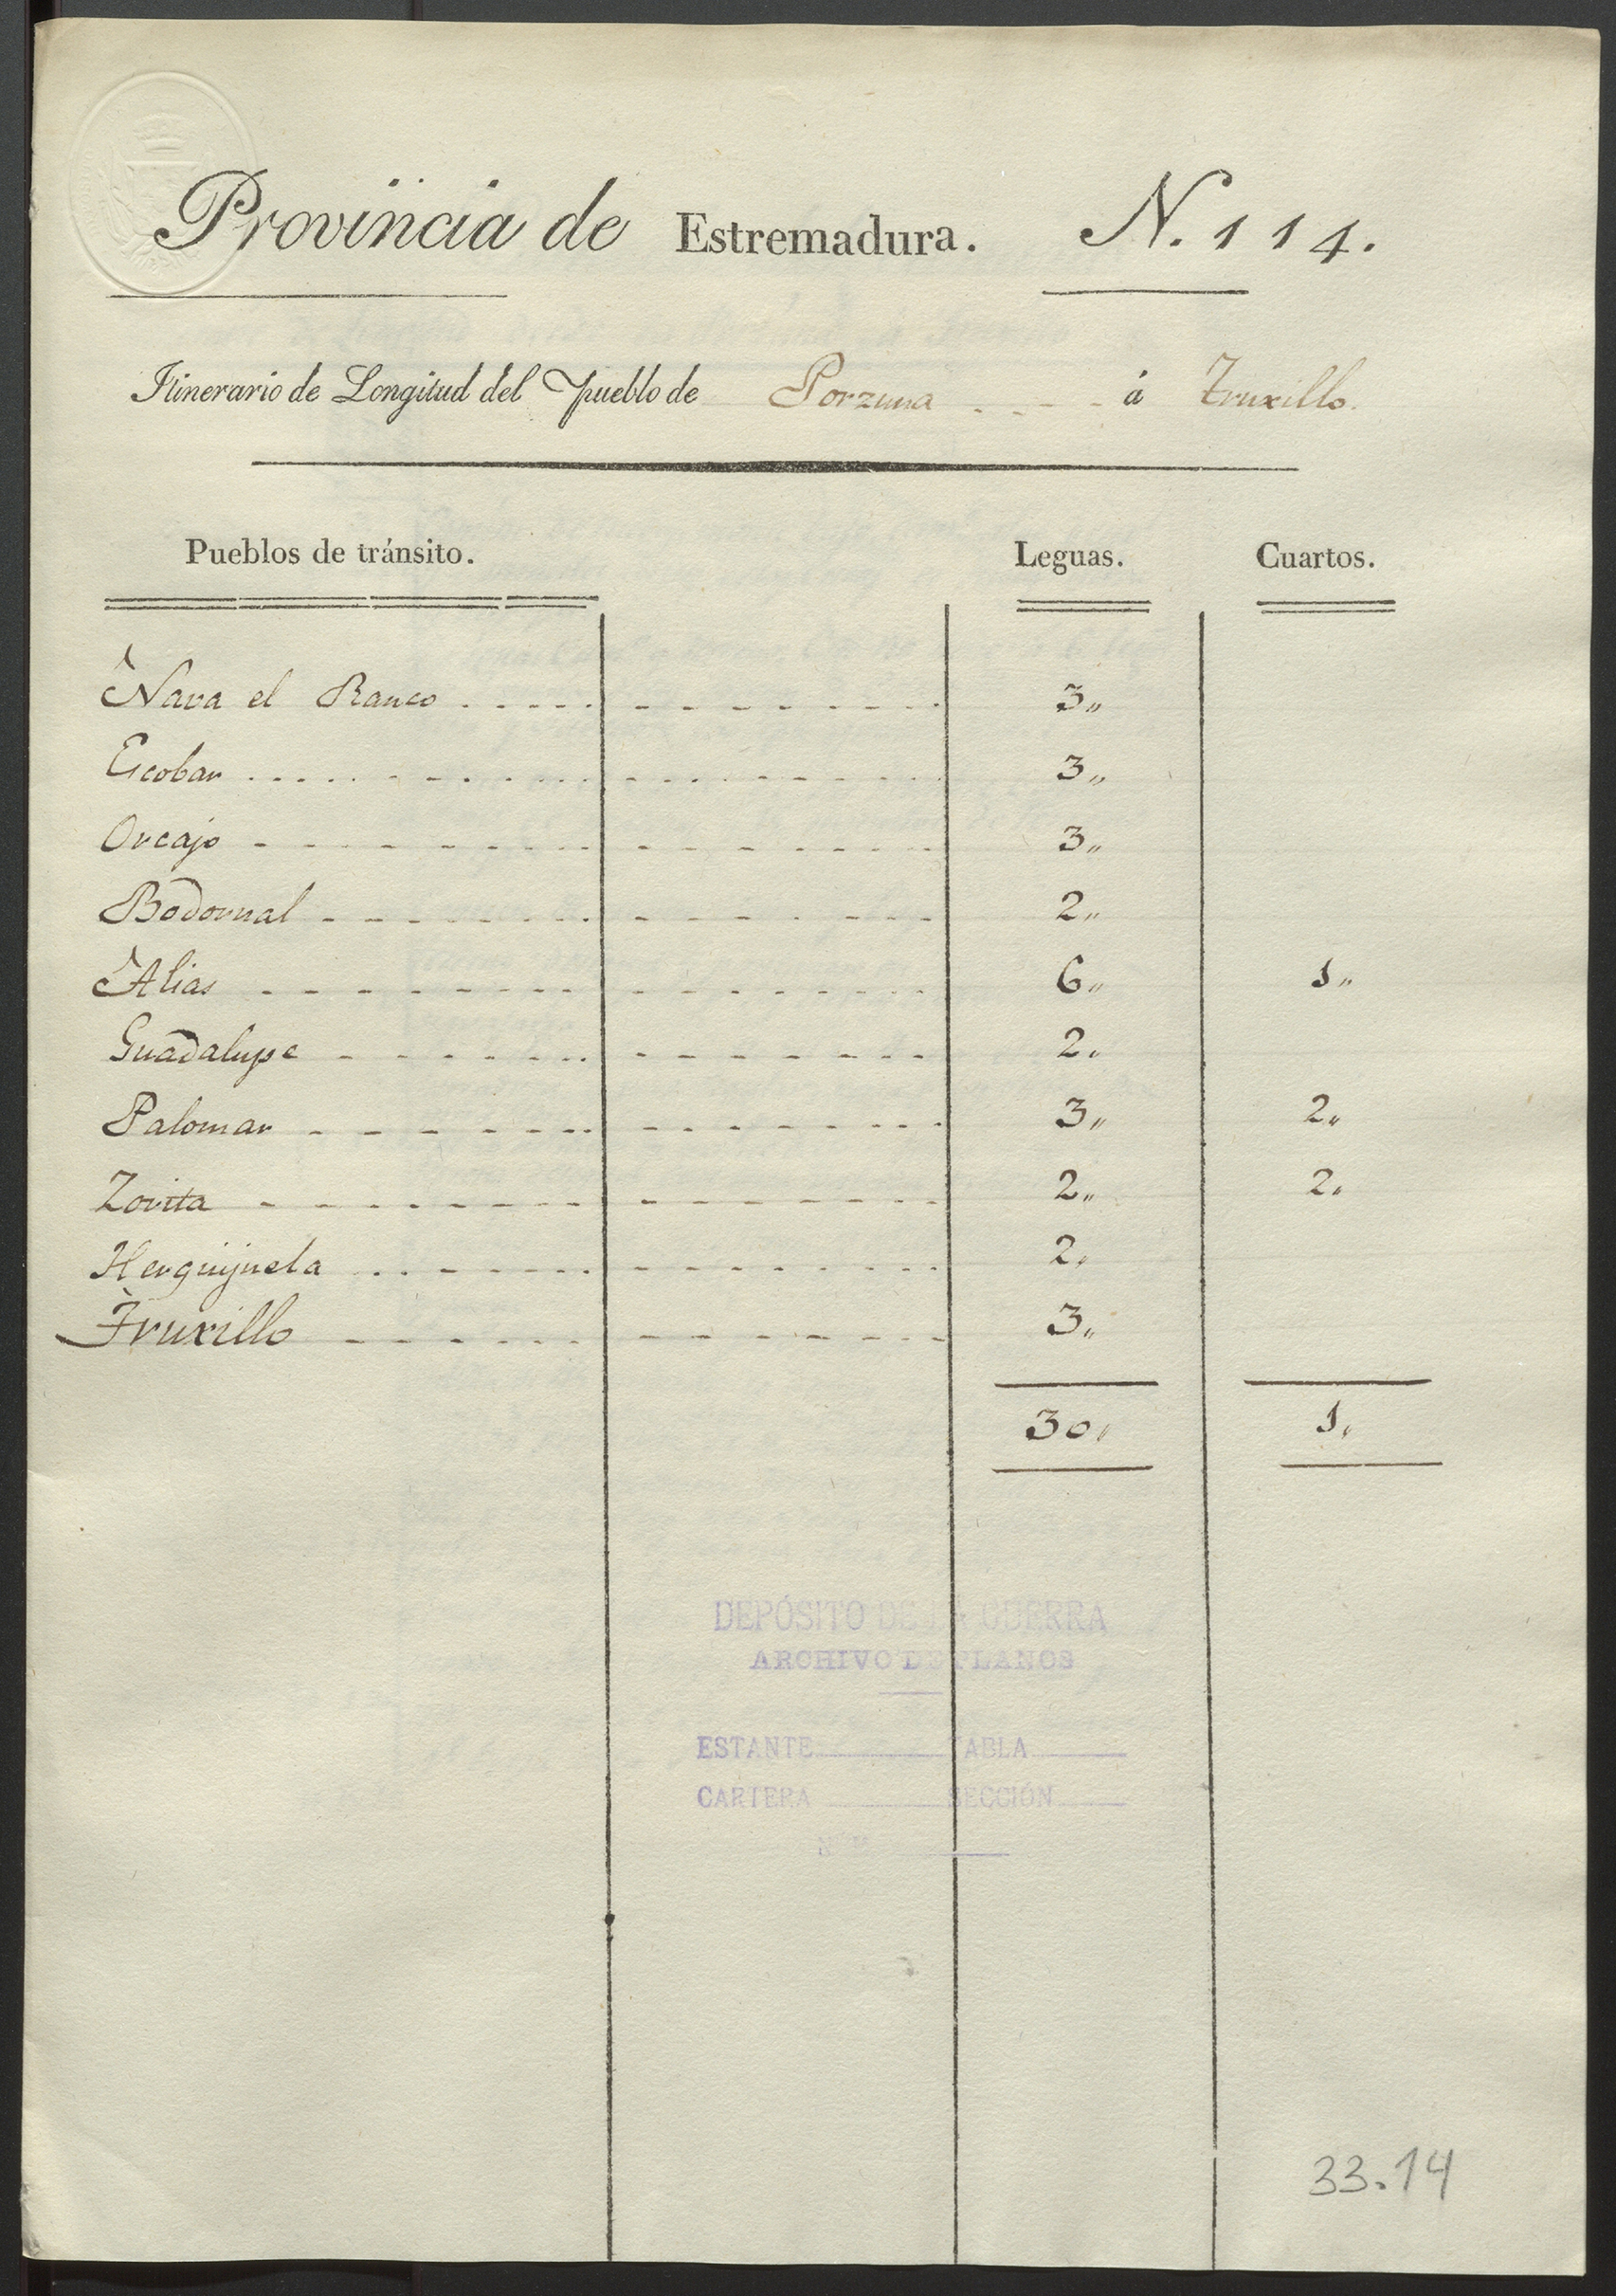 Provincia de Estremadura. N. 114.
Itinerario de Longitud del pueblo de Porzuna á Truxillo.
Pueblos de tránsito. Leguas. Cuartos.
Nava el Ranco 3,,
Escobar 3,,
Orcajo 3,,
Bodornal 2,,
Alias 6,, 1,,
Guadalupe 2,
Palomar 3,, 2,,
Zorita 2,, 2,
Herguijuela 2,
Truxillo 3,,
30, 1,
DEPÓSITO DE LA GUERRA
ARCHIVO DE PLANOS
ESTANTE TABLA
CARTERA SECCIÓN
33.14